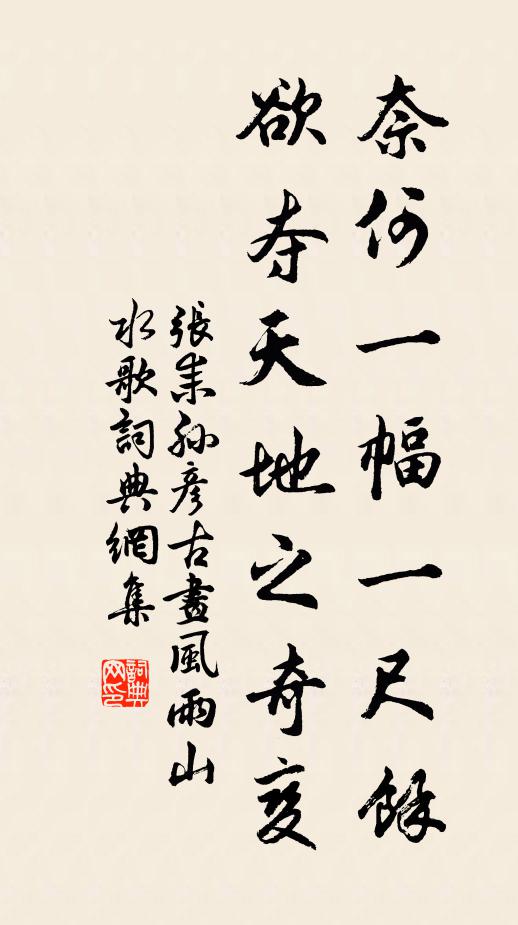 奈何一幅一尺餘
欲夺天地之奇变
張耒孫彦古畫風雨山
水歌詞典網集
詞典网印